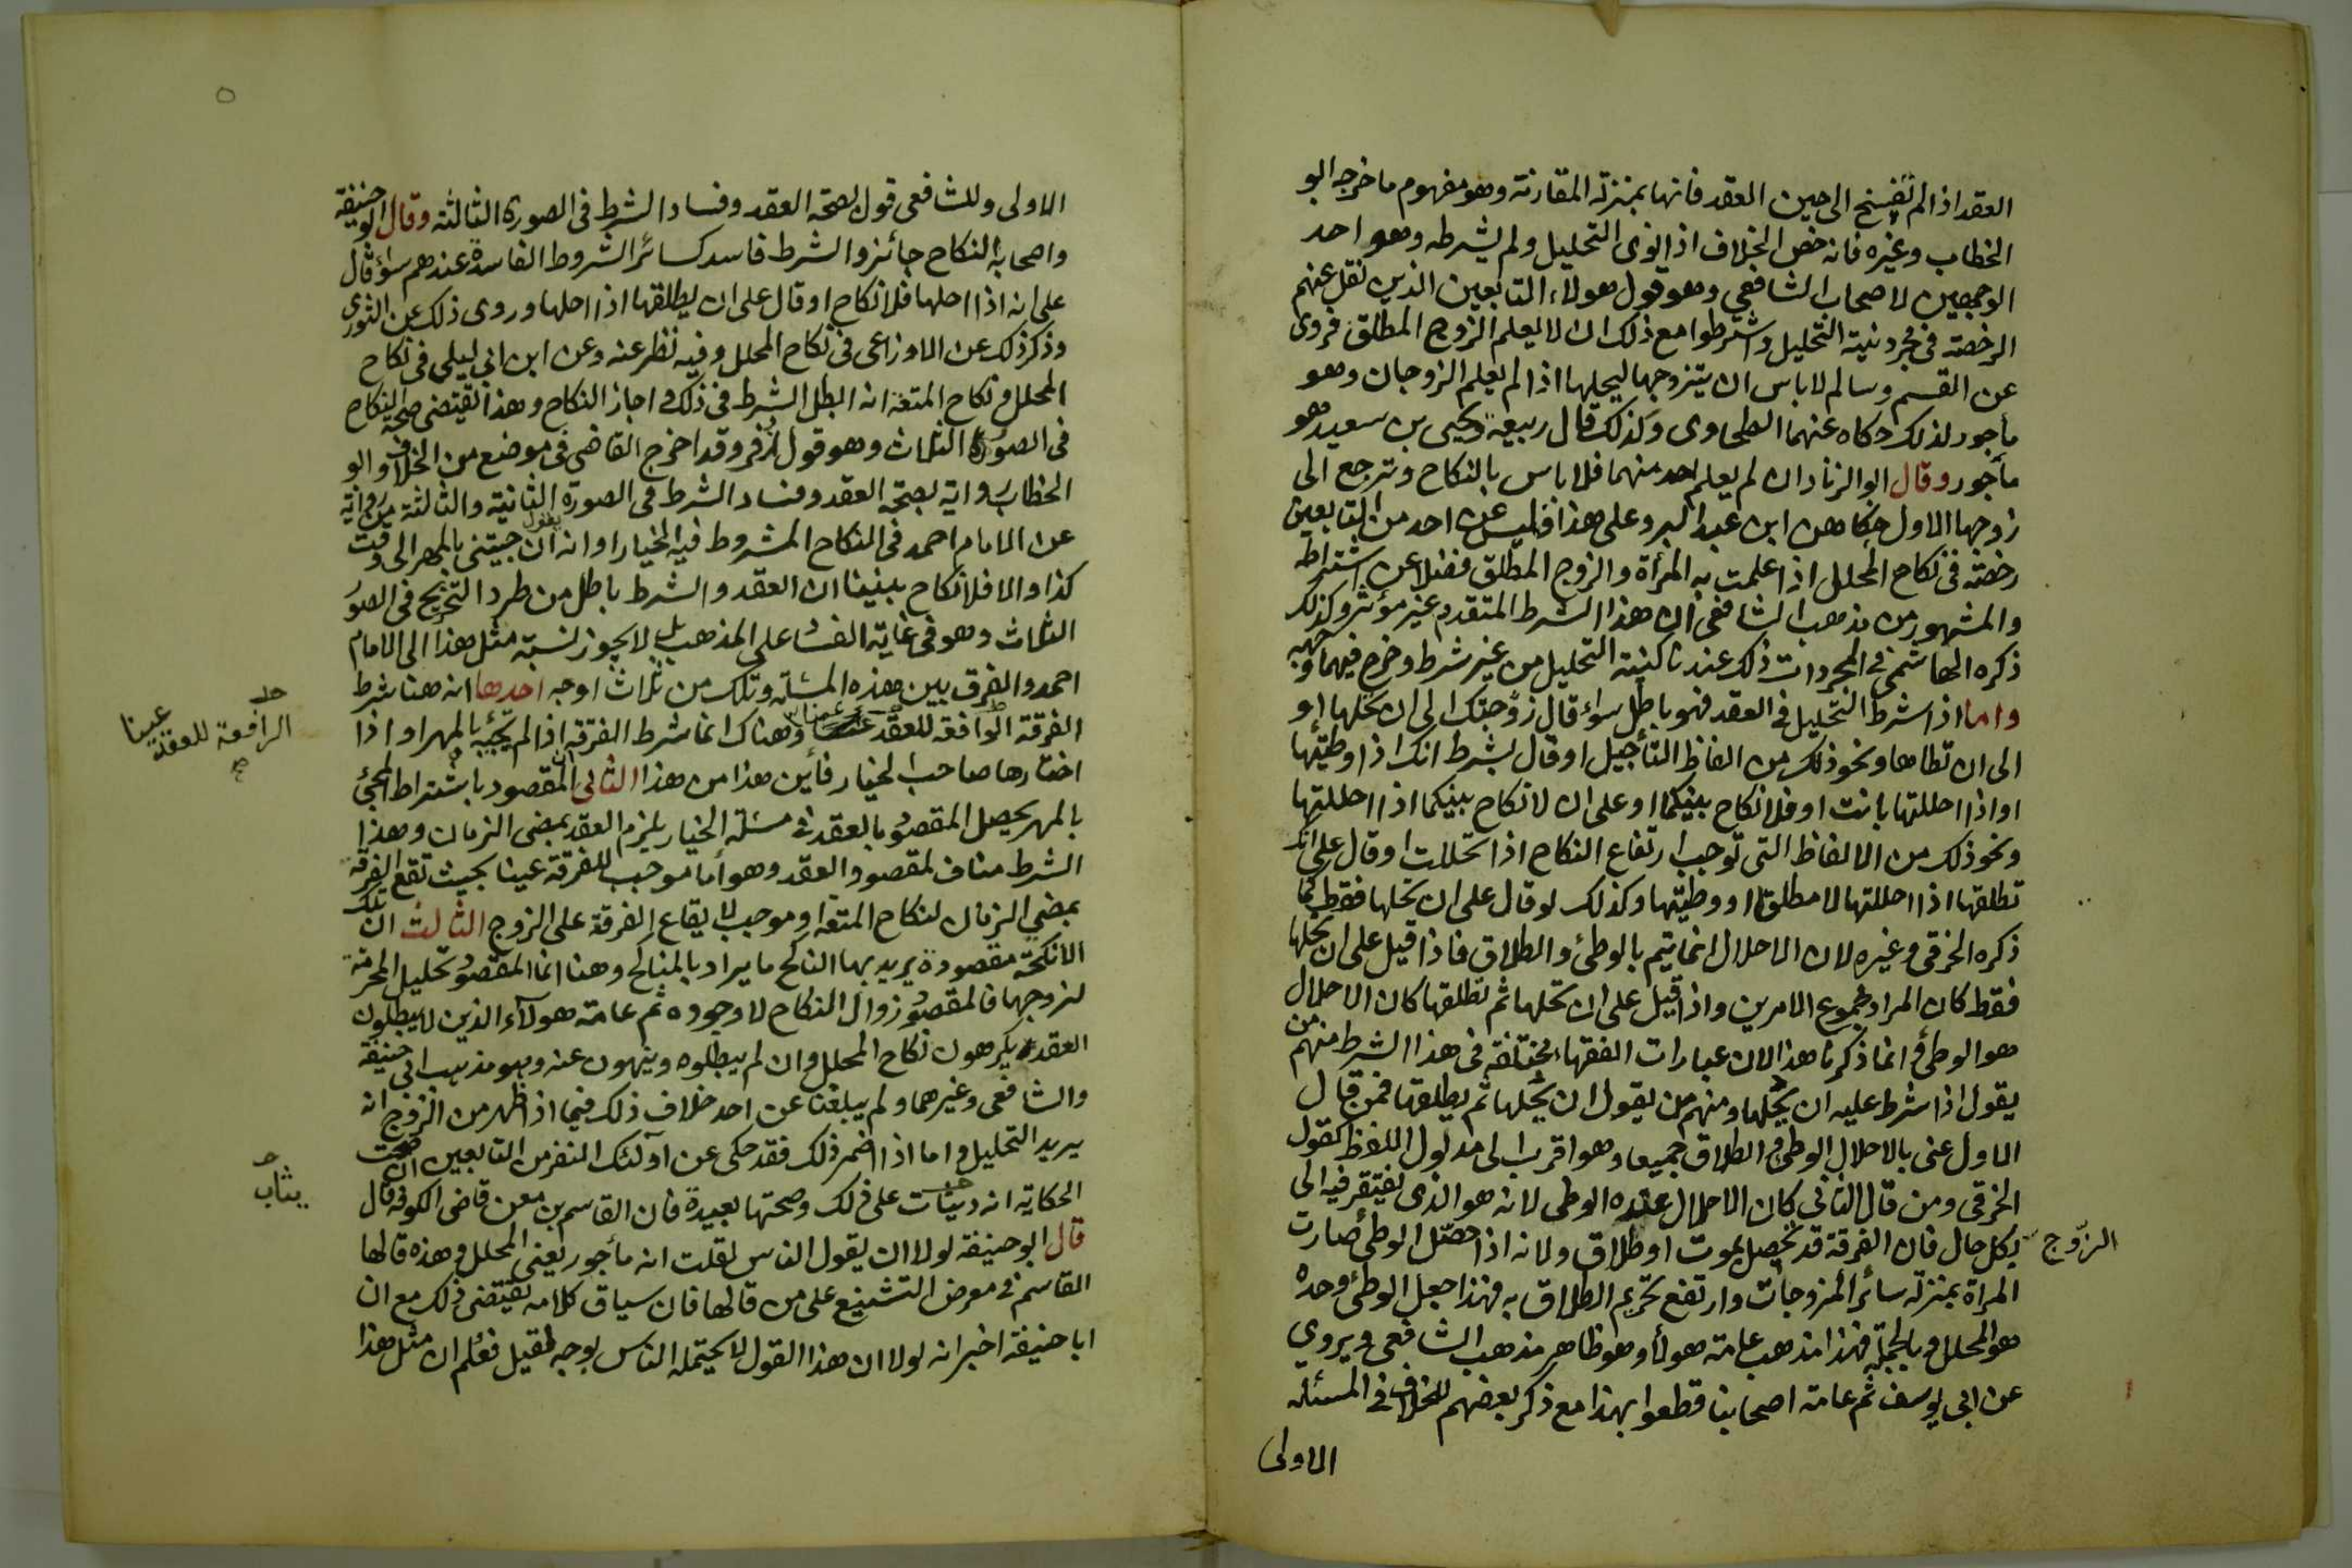 العقد اذا لم تفسخ الى حين العقد فانها بمنزلة المقارنة وهو مفهوم ما خرجه ابو
الخطاب وغيره فانه خص الخلاف اذا نوى التحليل ولم يشرطه وهو احد
الوجهين لاصحاب الشافعي وهو قول هولاء التابعين الذين نقل عنهم
الرخصة في مجرد نية التحليل واشترطوا مع ذلك ان لا يعلم الزوج المطلق فروى
عن القسم وسالم لا باس ان يتزوجها ليحلها اذا لم يعلم الزوجان وهو
مأجور لذلك حكاه عنهما الطحاوى وكذلك قال ربيعة ويحيى بن سعيد هو
مأجور وقال ابو الزناد ان لم يعلم احد منهما فلا باس بالنكاح وترجع الى
زوجها الاول حكاهن ابن عبد البر وعلى هذا فليس عن احد من التابعين
رخصة في نكاح المحلل اذا علمت به المرأة والزوج المطلق فضلا عن اشتراطه
والمشهور من مذهب الشافعى ان هذا الشرط المتقدم غير مؤثر وكذلك
ذكره الهاشمي في المجرد ان ذلك عندنا كنية التحليل من غير شرط وخرج فيهما وجهه
واما اذا شرط التحليل في العقد فهو باطل سواء قال زوجتك الى ان تحلها او
الى ان تطاها ونحو ذلك من الفاظ التأجيل او قال بشرط انك اذا وطيتها
او اذا احللتها بانت او فلا نكاح بينكما او على ان لا نكاح بينكما اذا احللتها
ونحو ذلك من الالفاظ التى توجب ارتفاع النكاح اذا تحللت او قال على انك
تطلقها اذا احللتها لا مطلقا او وطيتها وكذلك لو قال على ان تحلها فقط كما
ذكره الخرقى وغيره لان الاحلال انما يتم بالوطئ والطلاق فاذا قيل على ان تحلها
فقط كان المراد مجموع الامرين واذا قيل على ان تحلها ثم تطلقها كان الاحلال
هو الوطئ وانما ذكرنا هذا لان عبارات الفقهاء مختلفة في هذا الشرط منهم من
يقول اذا شرط عليه ان يحلها ومنهم من يقول ان يحلها ثم يطلقها فمن قال
الاول عنى بالاحلال الوطئ والطلاق جميعا وهو اقرب الى مدلول اللفظ كقول
الخرقى ومن قال الثانى كان الاحلال عنده الوطى لانه هو الذى يفتقر فيه الى
الزوج
بكل حال فان الفرقة قد تحصل بموت او طلاق ولانه اذا حصل الوطئ صارت
المراة بمنزلة سائر المزوجات وارتفع تحريم الطلاق به فهذا جعل الوطئ وحده
هو المحلل وبالجملة فهذا مذهب عامة هولاء وهو ظاهر مذهب الشافعى ويروى
عن ابى يوسف ثم عامة اصحابنا قطعوا بهذا مع ذكر بعضهم للخلاف في المسئله
الاولى
الاولى وللشافعى قول بصحة العقد وفساد الشرط فى الصورة الثالثة وقال ابو حنيفة
واصحابه النكاح جائز والشرط فاسد كسائر الشروط الفاسدة عندهم سواء قال
على انه اذا احلها فلا نكاح او قال على ان يطلقها اذا احلها وروى ذلك عن الثورى
وذكر ذلك عن الاوزاعى فى نكاح المحلل وفيه نظر عنه وعن ابن ابي ليلى فى نكاح
المحلل ونكاح المتعة انه ابطل الشرط فى ذلك واجاز النكاح وهذا يقتضى صحة النكاح
فى الصور الثلاث وهو قول زفر وقد اخرج القاضى فى موضع من الخلاف وابو
الخطاب رواية بصحة العقد وفساد الشرط فى الصورة الثانية والثالثة من رواية
عن الامام احمد فى النكاح المشروط فيه الخيار او انه يقول ان جيتنى بالمهر الى وقت
كذا والا فلا نكاح بيننا ان العقد والشرط باطل من طرد التخريج فى الصور
الثلاث وهو في غاية الفساد على المذهب بل لا يجوز نسبة مثل هذا الى الامام
احمد والفرق بين هذه المسئلة وتلك من ثلاث اوجه احدها انه هنا شرط
الرافعة للعقد عينا
الفرقة الوافقة للعقد وهناك انما شرط الفرقة اذا لم يجيه بالمهر او اذا
اختارها صاحب الخيار فأين هذا من هذا الثانى ان المقصود باشتراط المجئ
بالمهر يحصل المقصود بالعقد في مسئلة الخيار يلزم العقد بمضى الزمان وهذا
الشرط مناف لمقصود العقد وهو أما موجب للفرقة عينا بحيث تقع الفرقة
بمضي الزمان لنكاح المتعة او موجب لا يقاع الفرقة على الزوج الثالث ان تلك
الانكحة مقصودة يريد بها الناكح ما يراد بالمناكح وهنا انما المقصود تحليل المحرمة
لزوجها فالمقصود زوال النكاح لا وجوده ثم عامة هولآء الذين لا يبطلون
العقد يكرهون نكاح المحلل وان لم يبطلوه وينهون عنه وهو مذهب ابى حنيفة
والشافعى وغيرهما ولم يبلغنا عن احد خلاف ذلك فيما اذا ظهر من الزوج انه
يريد التحليل واما اذا اضمر ذلك فقد حكى عن اولئك النفر من التابعين ان صحت
يثاب
الحكاية انه يثاب على ذلك وصحتها بعيدة فان القاسم بن معن قاضى الكوفة قال
قال ابو حنيفة لولا ان يقول الناس لقلت انه مأجور يعنى المحلل وهذه قالها
القاسم في معرض التشنيع على من قالها فان سياق كلامه يقتضى ذلك مع ان
ابا حنيفة اخبر انه لولا ان هذا القول لا يحتمله الناس بوجه لقيل فعلم ان مثل هذا